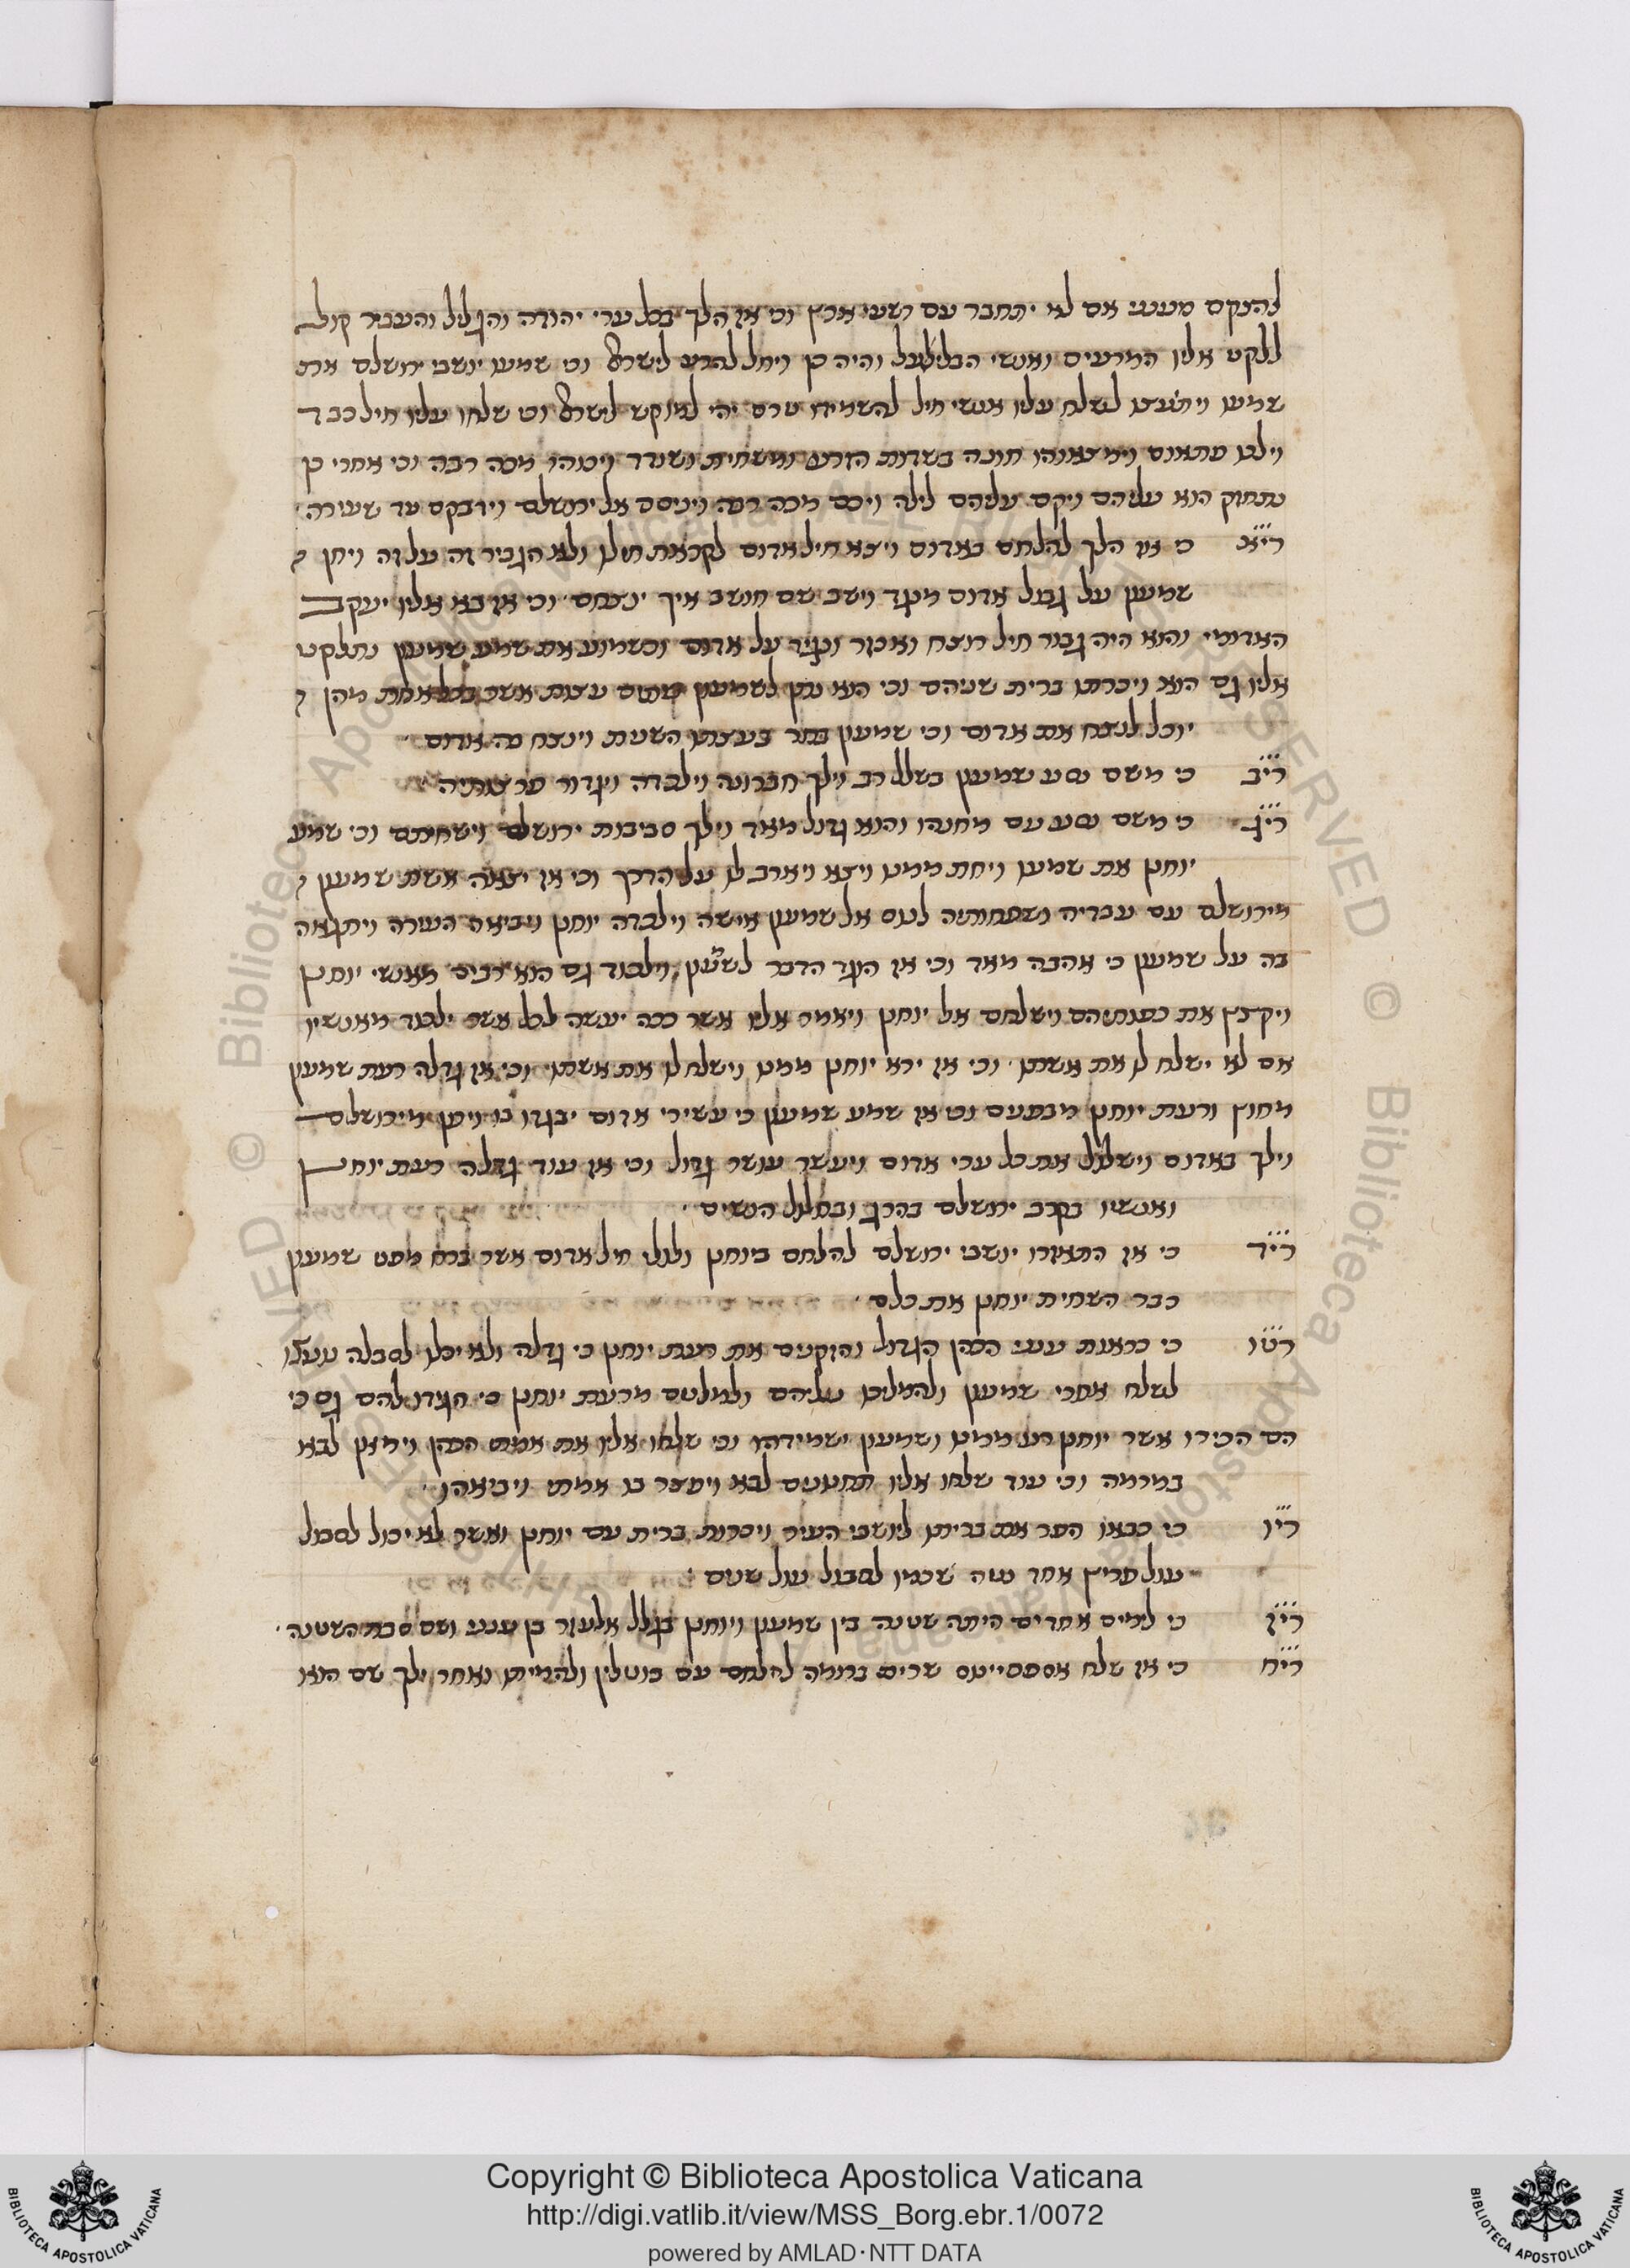 להנקם מענני אם לא יתחבר עם רשעי ארץ וכי אז הלך בכל ערי יהודה והגליל והעביר קול
ללקט אליו המרעים ואנשי הבליעל והיה כן ויחל להרע לישראל וכי שמעו יושבי ירושלם את
שמעון לשלח עליו אנשי חיל להשמידו טרם יהי למוקש לישראל וכי שלחו עליו חיל כבד
וילכו פתאום וימצאוהו חונה בשדות הזרע ומשחית ושודד ויכוהו מכה רבה וכי אחרי כן
התחזק הוא עליהם ויקם עליהם לילה ויכם מכה רבה וינוסם אל ירושלם וידבקם עד שעריה
ריא כי אז הלך להלחם באדום ויצא חיל אדום לקראת חילו ולא הגביר זה על זה ויחן
שמעון על גבול אדום מנגד וישב שם חושב איך ינצחם וכי אז בא אליו יעקב
האדומי והוא היה גבור חיל רוצח ואכזר ונגיד על אדום וכשמוע את שמע שמעון נתלקט
אליו גם הוא ויכרתו ברית שניהם וכי הוא נתן לשמעון שתים עצות אשר בכל אחת מהן
יוכל לנצח את אדום וכי שמעון בחר בעצתו השנית וינצח בה אדום
ריב כי משם נסע שמעון בשלל רב וילך חברונה וילכדה ויגדור פרצותיה
ריג כי משם נסע עם מחנהו והוא גדול מאד וילך סביבות ירושלם וישחיתם וכי שמע
יוחנן את שמעון ויחת ממנו ויצא ויארב לו על הדרך וכי אז יצאה אשת שמעון
מירושלם עם עבדיה ושפחותיה לנוס אל שמעון אישה וילכדה יוחנן ויביאה העירה ויתגאה
בה על שמעון כי אהבה מאד וכי אז הוגד הדבר לשמעון וילכוד גם הוא רבים מאנשי יוחנן
ויקצץ את ידיהם וישלחם אל יוחנן ויאמר אליו אשר ככה יעשה לכל אשר ילכוד מאנשיו
אם לא ישלח לו את אשתו וכי אז ירא יוחנן ממנו וישלח לו את אשתו וכי אז גדלה רעת שמעון
מחוץ ורעת יוחנן מבפנים וכי אז שמע שמעון כי עשירי אדום יבגדו בו ויסע מירושלם
וילך באדום וישלול את כל ערי אדום ויעשר עושר גדול וכי אז עוד גדלה רעת יוחנן
ואנשיו בקרב ירושלם בהרג ובחלול הנשים
ריד כי אז התאזרו יושבי ירושלם להלחם ביוחנן ולולי חיל אדום אשר ברח מפני שמעון
כבר השחית יוחנן את כלם
רטו כי כראות ענני הכהן הגדול והזקנים את רעת יוחנן כי גדלה ולא יכלו לסבלה נועצו
לשלח אחרי שמעון ולהמליכו עליהם ולמלטם מרעת יוחנן כי הגידו להם גם כי
הם הכירו אשר יוחנן רע ממנו ושמעון ישמידהו וכי שלחו אליו את אמתי הכהן וימאן לבא
במרמה וכי עוד שלחו אליו תחנונים לבא ויפצר בו אמתי ויביאהו
ריו כי כבואו הפר את בריתו ליושבי העיר ויכרות ברית עם יוחנן ואשר לא יכול לסבול
עול פריץ אחד נטה שכמו לסבול עול שנים
ריז כי לימים אחדים היתה שטנה בין שמעון ויוחנן בגלל אלעזר בן ענני ושם סבת השטנה
ריח כי אז שלח אספסיינוס שרים ברומה להלחם עם ביטלין ולהמיתו ואחר ילך שם הוא